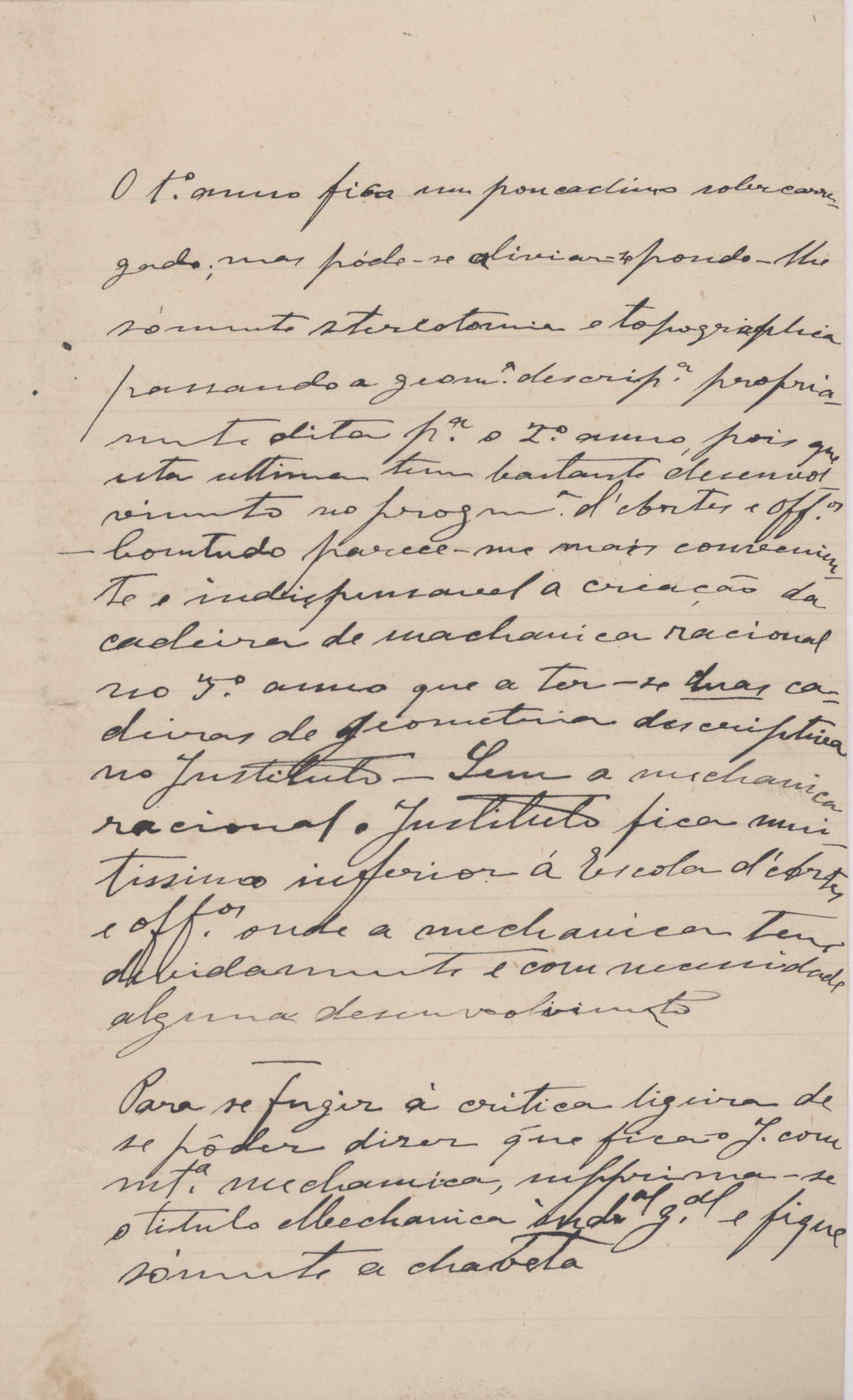 O 1.º anno fica um poucadinho sobrecarre-
gado; mas póde-se aliviar=se pondo-lhe
sómente stereotomia e topographia
passando a geom.ª descrip.ª propria-
mente dita p.ª o 2.º anno, pois que
esta ultima tem bastante desenvol
vimento no progm.ª d'Artes e Off.os
- Comtudo parece-me mais convenien-
te e indispensavel a creação da
cadeira de machanica racional
no 3.º anno que a ter-se duas ca-
deiras de geometria descriptiva
no Instituto - Sem a mechanica
racional o Instituto fica mui
tissimo inferior á Escola d'Artes
e off.os onde a mechanica tem,
devidamente e com necessidade
alguma desenvolvimento
Para se fugir á critica ligeira de
se pôder dizer que fica o I. com
mt.ª mechanica, supprima-se
o titulo Mechanica indr.al g.al e fique
sómente a chaveta